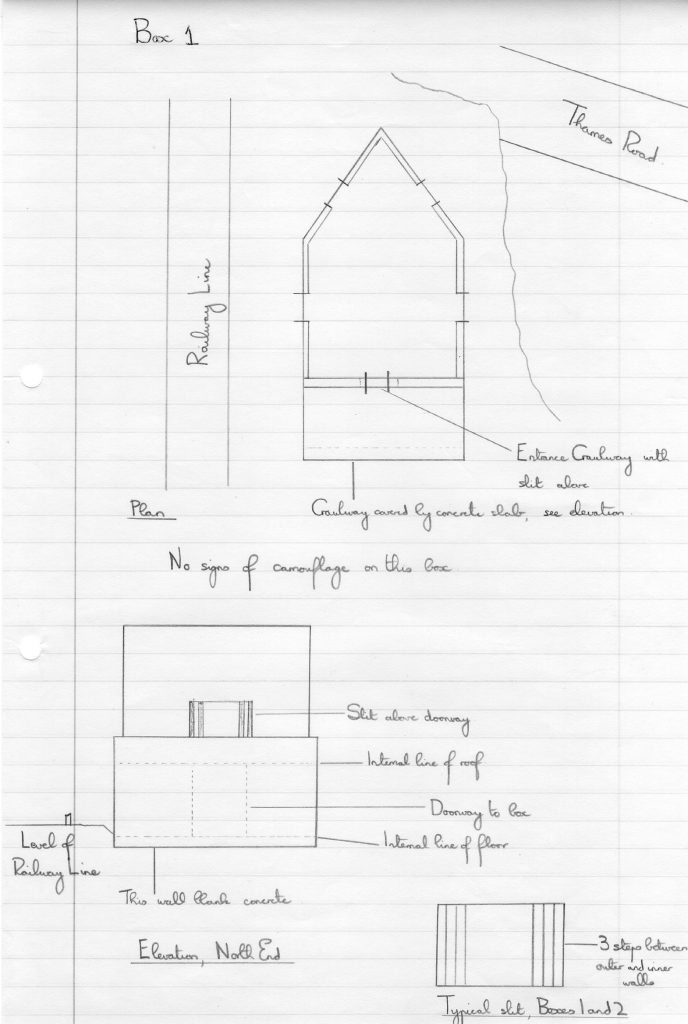 Box 1
Thames Road
Railway Line
Entrance Crawlway with
slit above
Plan
Crawlway coverd by concrete slab, see elevation.
No signs of camouflage on this box.
Slit above doorway
Internal line of roof
Doorway to box
Internal line of floor
Level of
Railway Line
This wall blank concrete
Elevation, North End
3 steps between
outer and inner
walls
Typical slit, Boxes 1 and 2